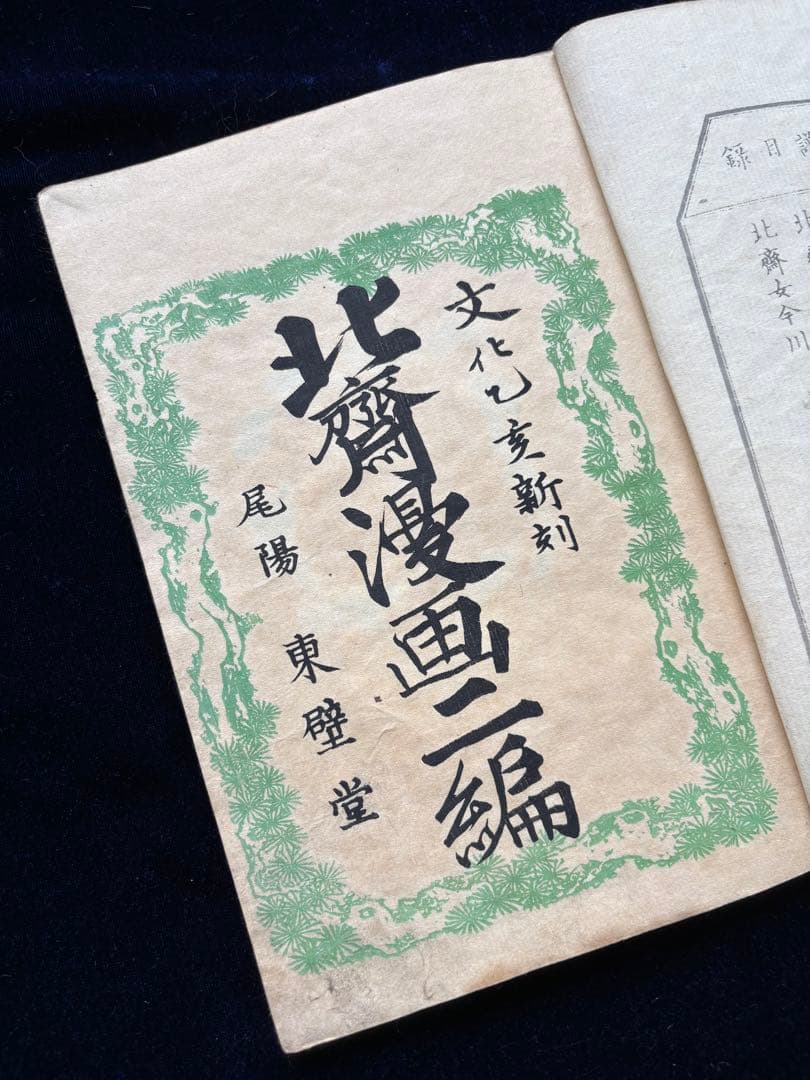 文化乙亥新刻
北齋漫画二編
尾陽 東壁堂
目録
北
北齋女今川